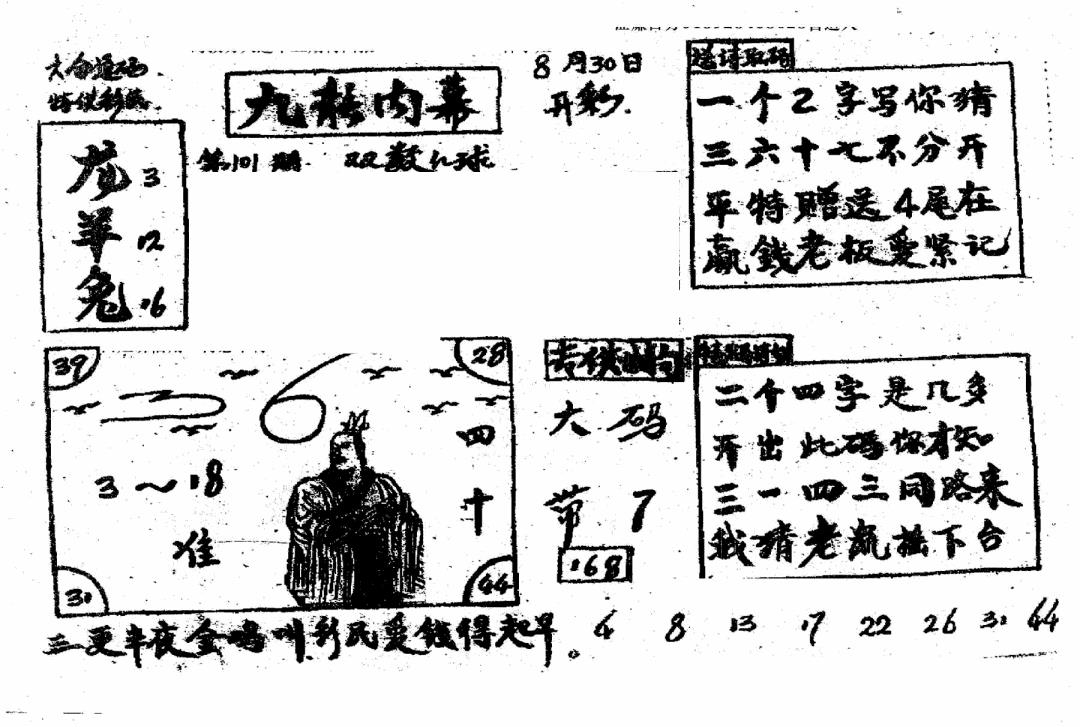 8月30日
开彩.
九彩内幕
第101期 双数几球
龙 3
羊 12
兔 16
送诗取码
一个2字写你猜
三六十七不分开
平特赠送4尾在
赢錢老板要紧记
39
28
6
四十
3~18
准
31
44
大码
带7
168
二个四字是几多
开出此码你才知
三一四三同路来
我猜老鼠摇下台
三更半夜金鸣叫.彩民爱錢得起早。
4 8 13 17 22 26 31 44